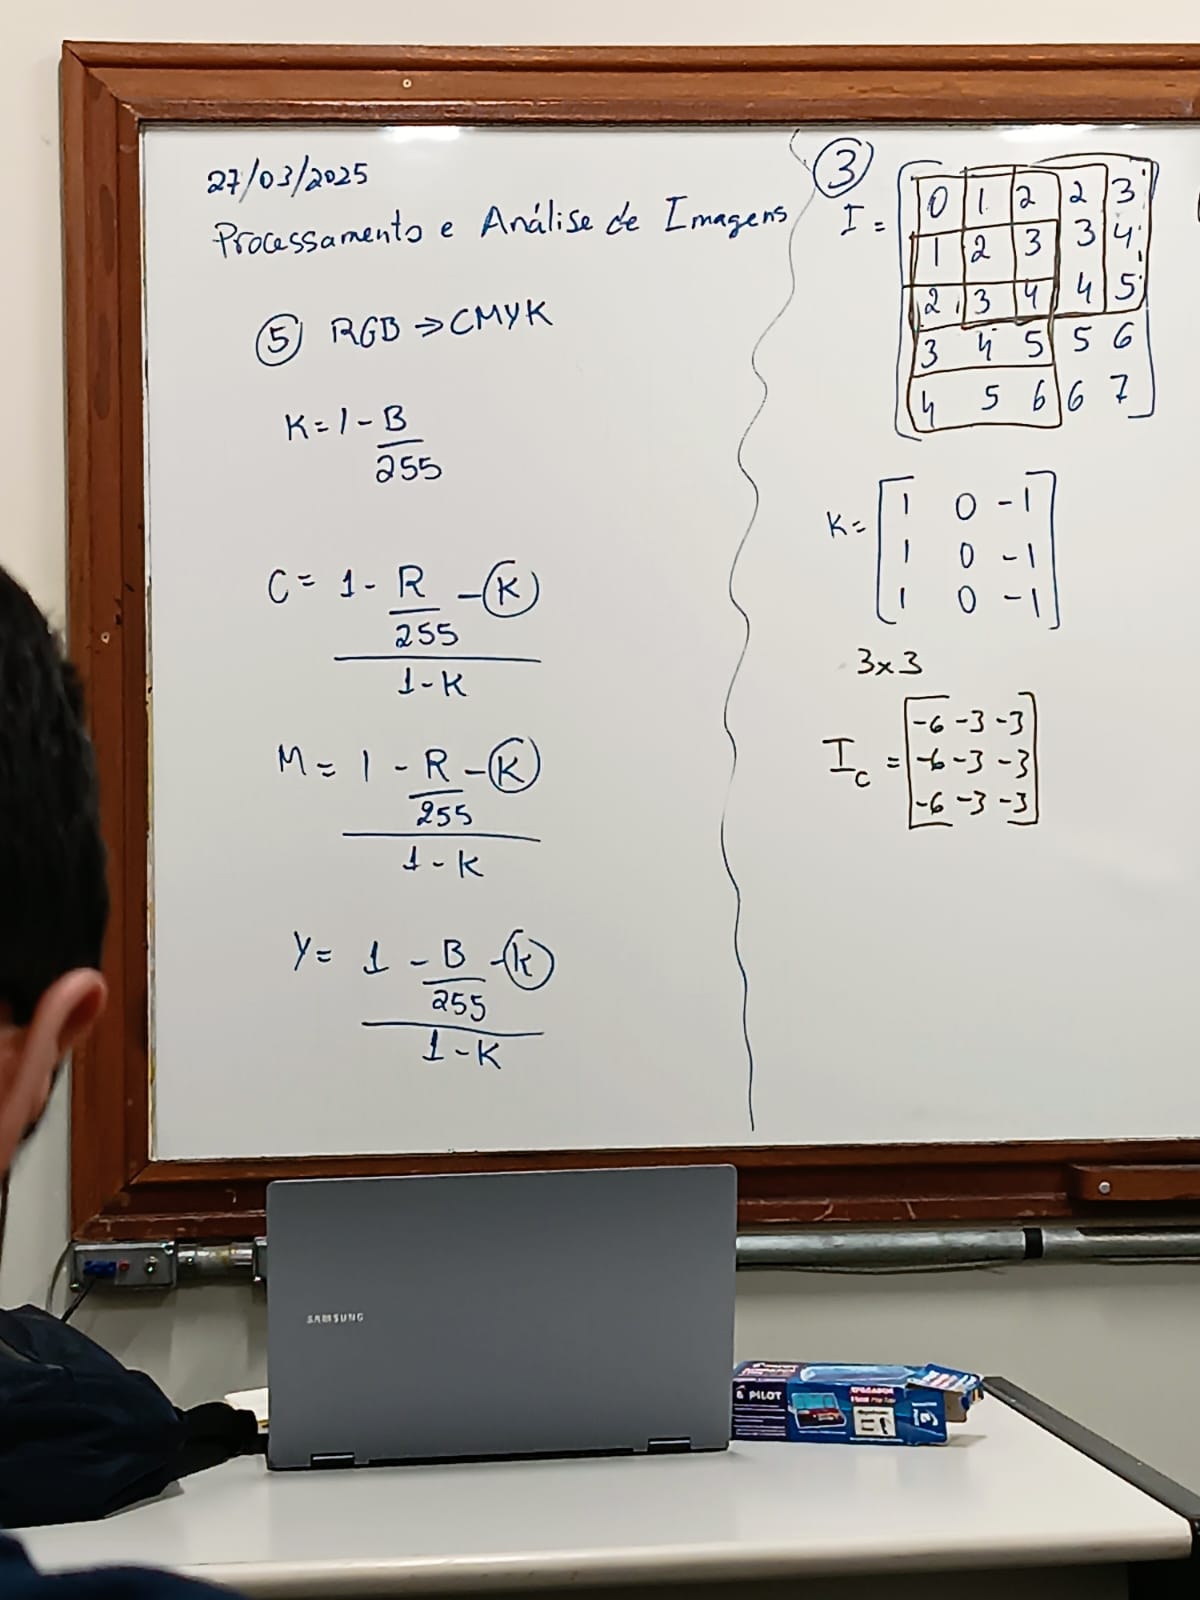 27/03/2025
Processamento e Análise de Imagens
5 RGB → CMYK
K = 1 - B
255
C = 1 - R - K
255
1 - K
M = 1 - R - K
255
1 - K
Y = 1 - B - K
255
1 - K
3
I =
0 1 2 2 3
1 2 3 3 4
2 3 4 4 5
3 4 5 5 6
4 5 6 6 7
K =
1 0 -1
1 0 -1
1 0 -1
3x3
Ic =
-6 -3 -3
-6 -3 -3
-6 -3 -3
SAMSUNG
PILOT